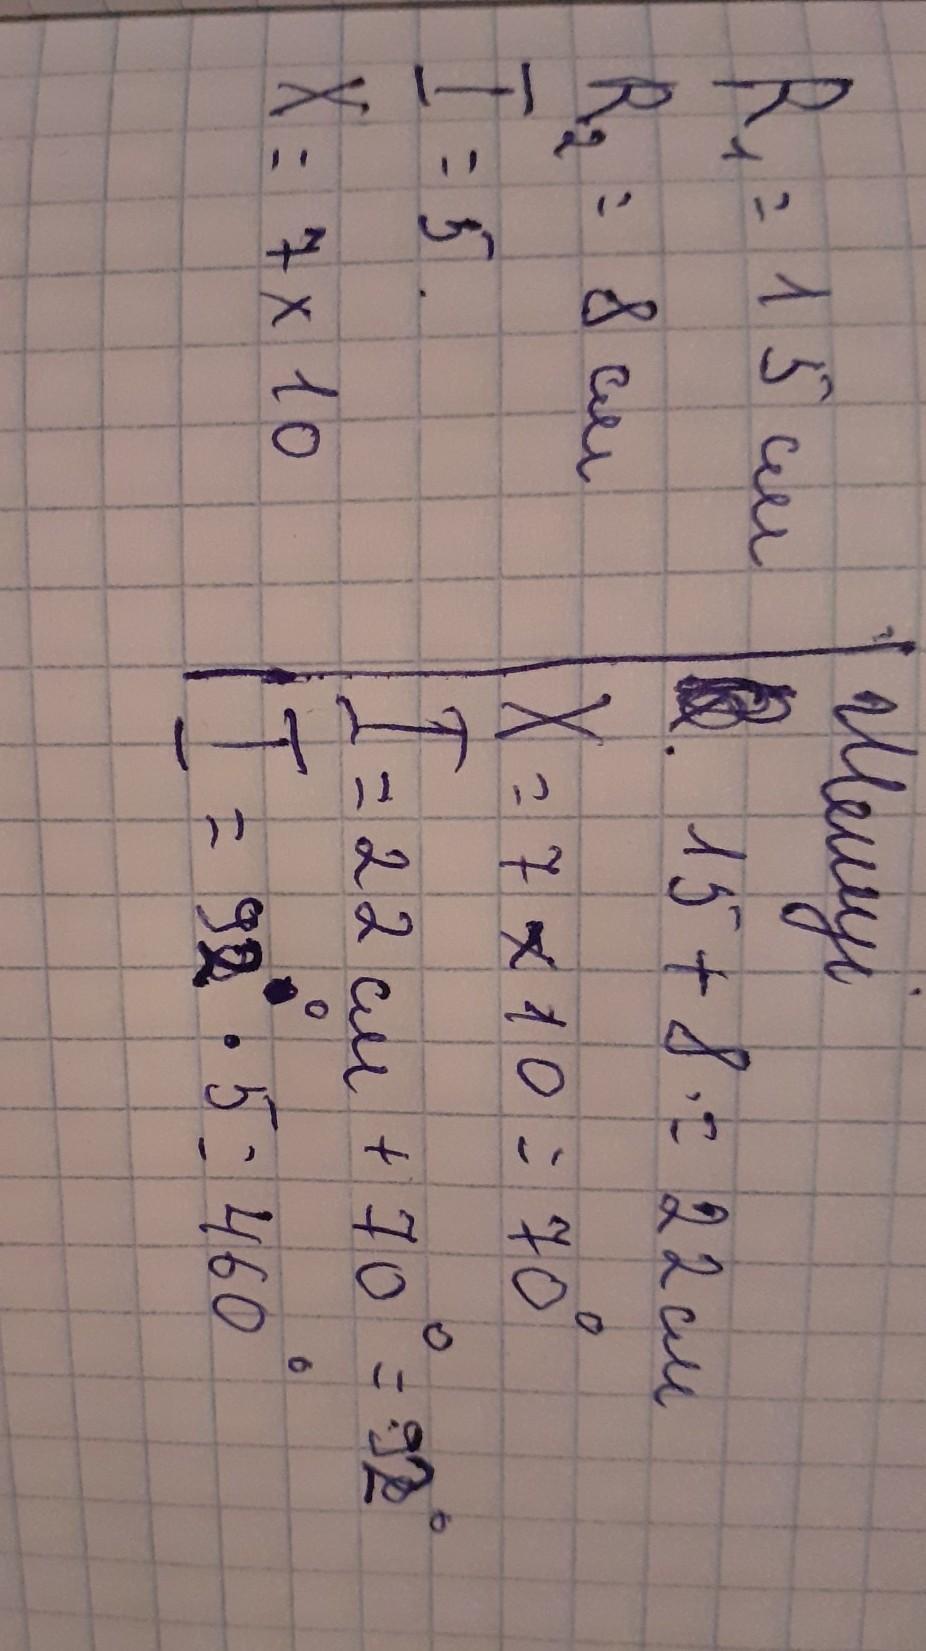 R₁ = 15 см
R₂ = 8 см
I = 5.
X = 7 x 10
Шешуі
. 15 + 8 = 22 см
X = 7 x 10 = 70°
I = 22 см + 70° = 92°
I = 92° · 5 = 460°